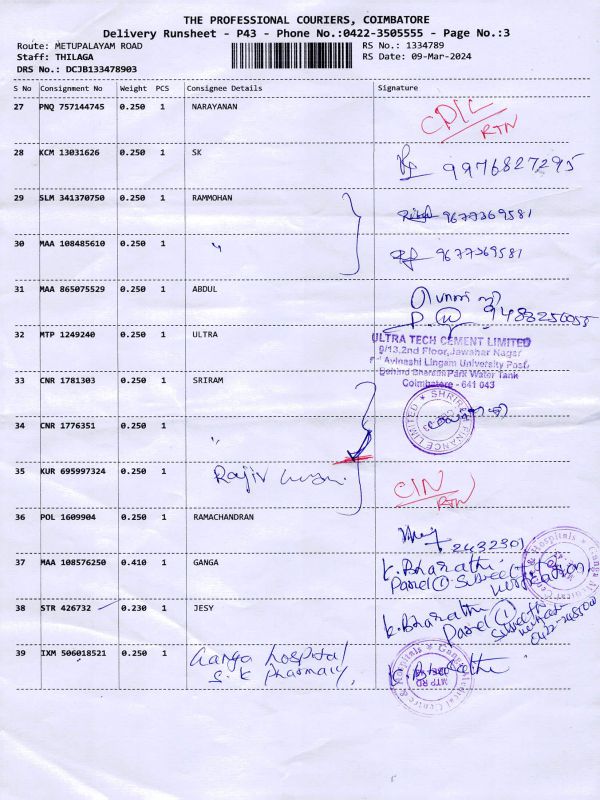 THE PROFESSIONAL COURIERS, COIMBATORE
Delivery Runsheet - P43 - Phone No.:0422-3505555 - Page No.:3
Route: METUPALAYAM ROAD RS No.: 1334789
Staff: THILAGA RS Date: 09-Mar-2024
DRS No.: DCJB133478903
S No Consignment No Weight PCS Consignee Details Signature
27 PNQ 757144745 0.250 1 NARAYANAN
RTN
28 KCM 13031626 0.250 1 SK 9976827295
29 SLM 341370750 0.250 1 RAMMOHAN 9677369581
30 MAA 108485610 0.250 1 " 9677369581
31 MAA 865075529 0.250 1 ABDUL
32 MTP 1249240 0.250 1 ULTRA
ULTRA TECH CEMENT LIMITED
9/13,2nd Floor,Jawahar Nagar
Avinashi Lingam University Post,
Behind Bharathi Park Water Tank
Coimbatore - 641 043
33 CNR 1781303 0.250 1 SRIRAM
FINANCE LIMITED
34 CNR 1776351 0.250 1 "
35 KUR 695997324 0.250 1 Rajiv
RTN
36 POL 1609904 0.250 1 RAMACHANDRAN
2432301
37 MAA 108576250 0.410 1 GANGA K. Bharathi
38 STR 426732 0.230 1 JESY K. Bharathi
39 IXM 506018521 0.250 1 Ganga hospital
S.K pharmacy, K. Bharathi
Ganga Medical Centre & Hospitals
MTP RD